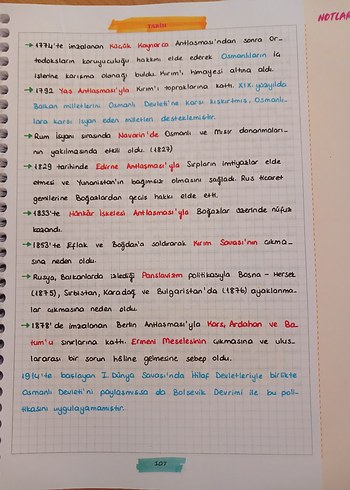 NOTLAR
→ 1774'te imzalanan Küçük Kaynarca Antlaşması'ndan sonra Or-
todoksların koruyuculuğu hakkını elde ederek Osmanlıların iç
işlerine karışma olanağı buldu. Kırım'ı himayesi altına aldı.
→ 1792 Yaş Antlaşması'yla Kırım'ı topraklarına kattı. XIX. yüzyılda
Balkan milletlerini Osmanlı Devleti'ne karşı kışkırtmış, Osmanlı-
lara karşı isyan eden milletleri desteklemiştir.
→ Rum İsyanı sırasında Navarin'de Osmanlı ve Mısır donanmaları-
nın yakılmasında etkili oldu. (1827)
→ 1829 tarihinde Edirne Antlaşması'yla Sırpların imtiyazlar elde
etmesi ve Yunanistan'ın bağımsız olmasını sağladı. Rus ticaret
gemilerine Boğazlardan geçiş hakkı elde etti.
→ 1833'te Hünkâr İskelesi Antlaşması'yla Boğazlar üzerinde nüfuz
kazandı.
→ 1853'te Eflak ve Boğdan'a saldırarak Kırım Savaşı'nın çıkma-
sına neden oldu.
→ Rusya, Balkanlarda izlediği Panslavizm politikasıyla Bosna - Hersek
(1875), Sırbistan, Karadağ ve Bulgaristan'da (1876) ayaklanma-
lar çıkmasına neden oldu.
→ 1878'de imzalanan Berlin Antlaşması'yla Kars, Ardahan ve Ba-
tum'u sınırlarına kattı. Ermeni Meselesinin çıkmasına ve ulus-
lararası bir sorun hâline gelmesine sebep oldu.
1914'te başlayan I. Dünya Savaşı'nda İtilaf Devletleriyle birlikte
Osmanlı Devleti'ni paylaşmışsa da Bolşevik Devrimi ile bu poli-
tikasını uygulayamamıştır.
107